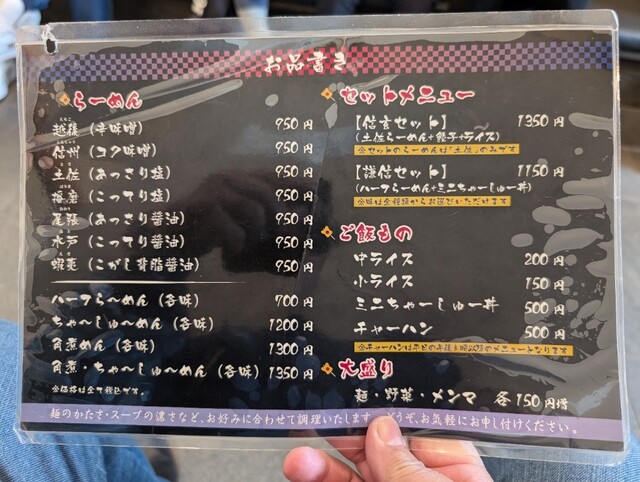 お品書き
らーめん
越後（辛味噌） 950円
信州（コク味噌） 950円
土佐（あっさり塩） 950円
播磨（こってり塩） 950円
尾張（あっさり醤油） 950円
水戸（こってり醤油） 950円
蝦夷（こがし背脂醤油） 950円
ハーフらーめん（各味） 700円
ちゃーしゅーめん（各味） 1200円
角煮めん（各味） 1300円
角煮・ちゃーしゅーめん（各味） 1350円
※価格は全て税込です。
セットメニュー
【信玄セット】 1350円
（土佐らーめん+餃子+ライス）
※セットのらーめんは「土佐」のみです
【謙信セット】 1150円
（ハーフらーめん+ミニちゃーしゅー丼）
※味は全種類からお選びいただけます
ご飯もの
中ライス 200円
小ライス 150円
ミニちゃーしゅー丼 500円
チャーハン 500円
※チャーハンは平日の午後
メニューとなります
大盛り
麺・野菜・メンマ 各150円増
麺のかたさ・スープの濃さなど、お好みに合わせて調理いたします。どうぞ、お気軽にお申し付けください。